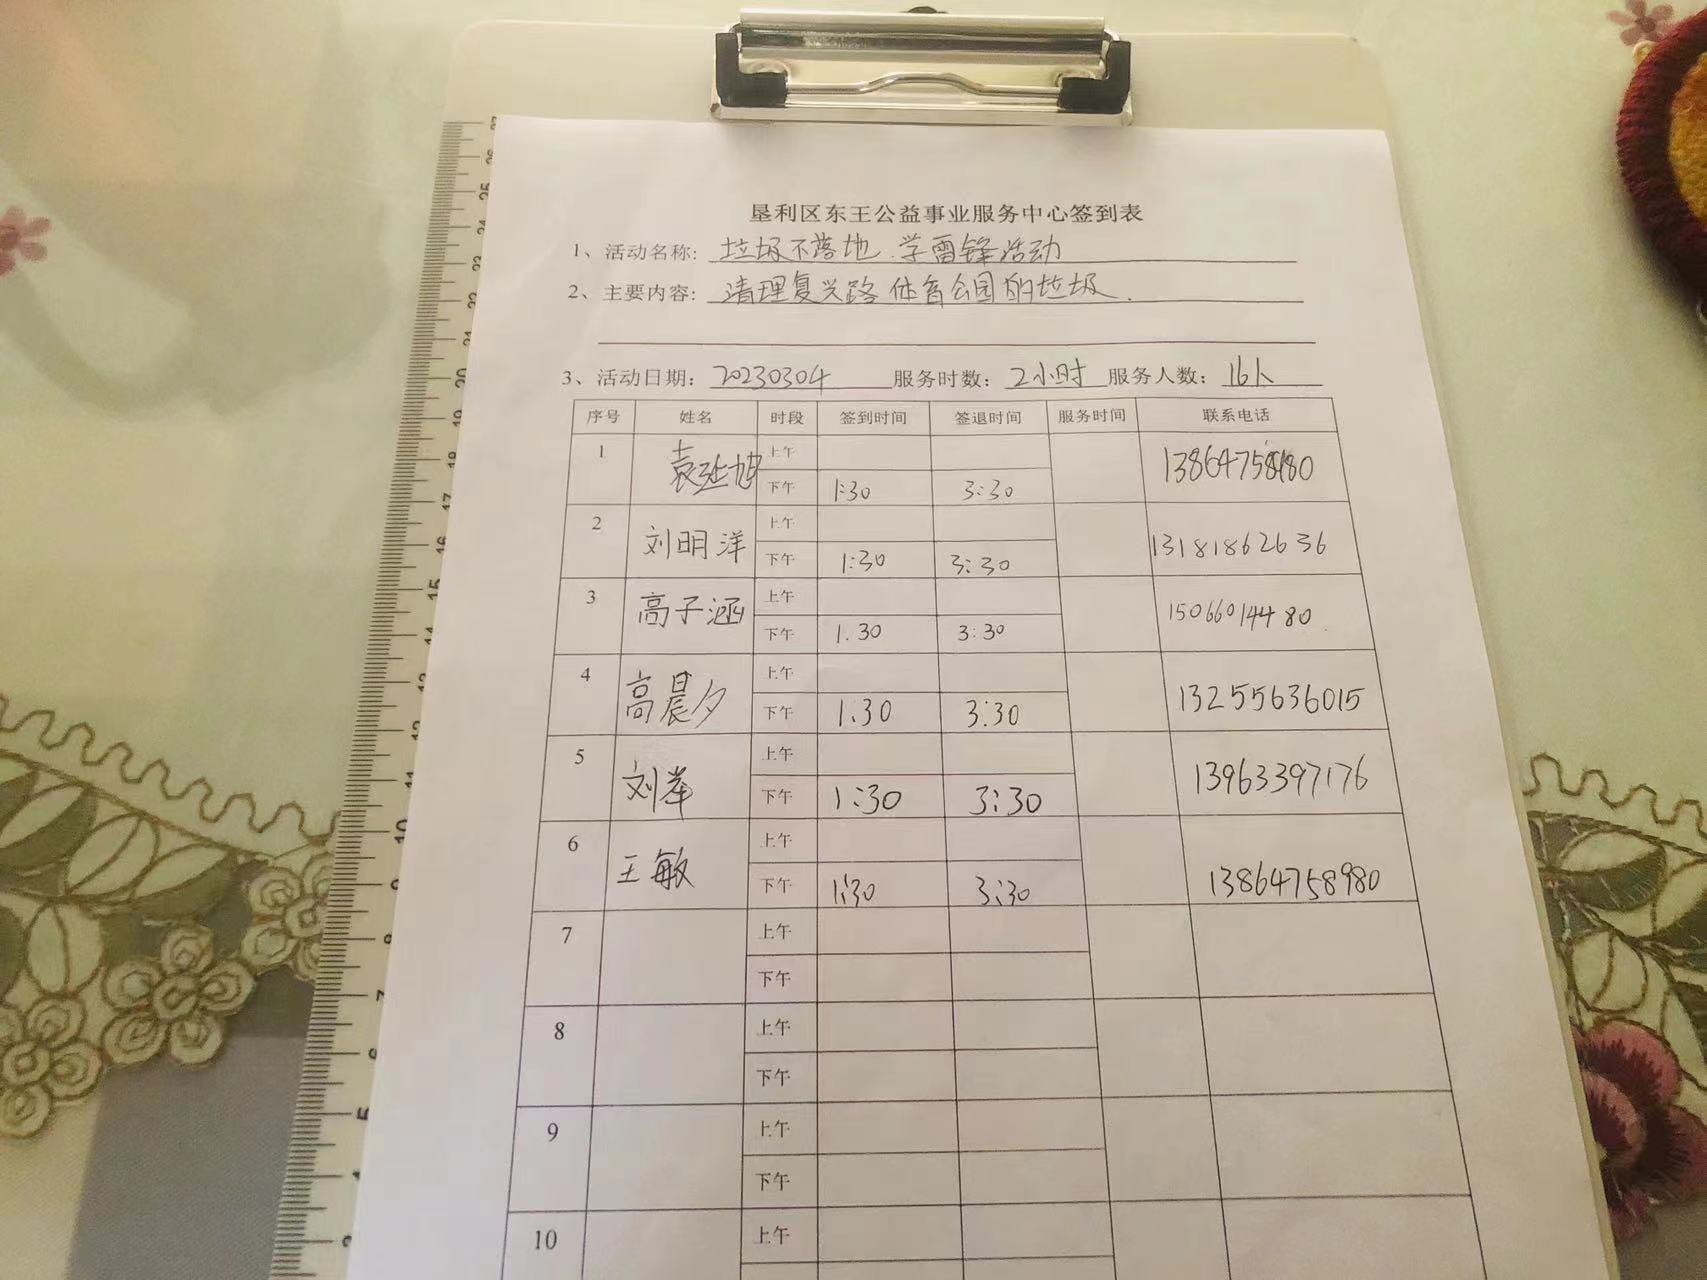 垦利区东王公益事业服务中心签到表
1、活动名称: 垃圾不落地.学雷锋活动
2、主要内容: 清理复兴路体育公园的垃圾.
3、活动日期: 20230304 服务时数: 2小时 服务人数: 16人
序号 姓名 时段 签到时间 签退时间 服务时间 联系电话
1 袁延旭 上午
下午 1:30 3:30
2 刘明洋 上午 13181862636
下午 1:30 3:30
3 高子涵 上午 15066014480
下午 1.30 3:30
4 高晨夕 上午 13255636015
下午 1.30 3:30
5 刘 上午 13963397176
下午 1:30 3:30
6 王敏 上午 13864758980
下午 1:30 3:30
7 上午
下午
8 上午
下午
9 上午
下午
10 上午
27
26
25
24
23
22
21
20
19
18
17
16
15
14
13
12
11
10
9
8
7
6
5
4
2